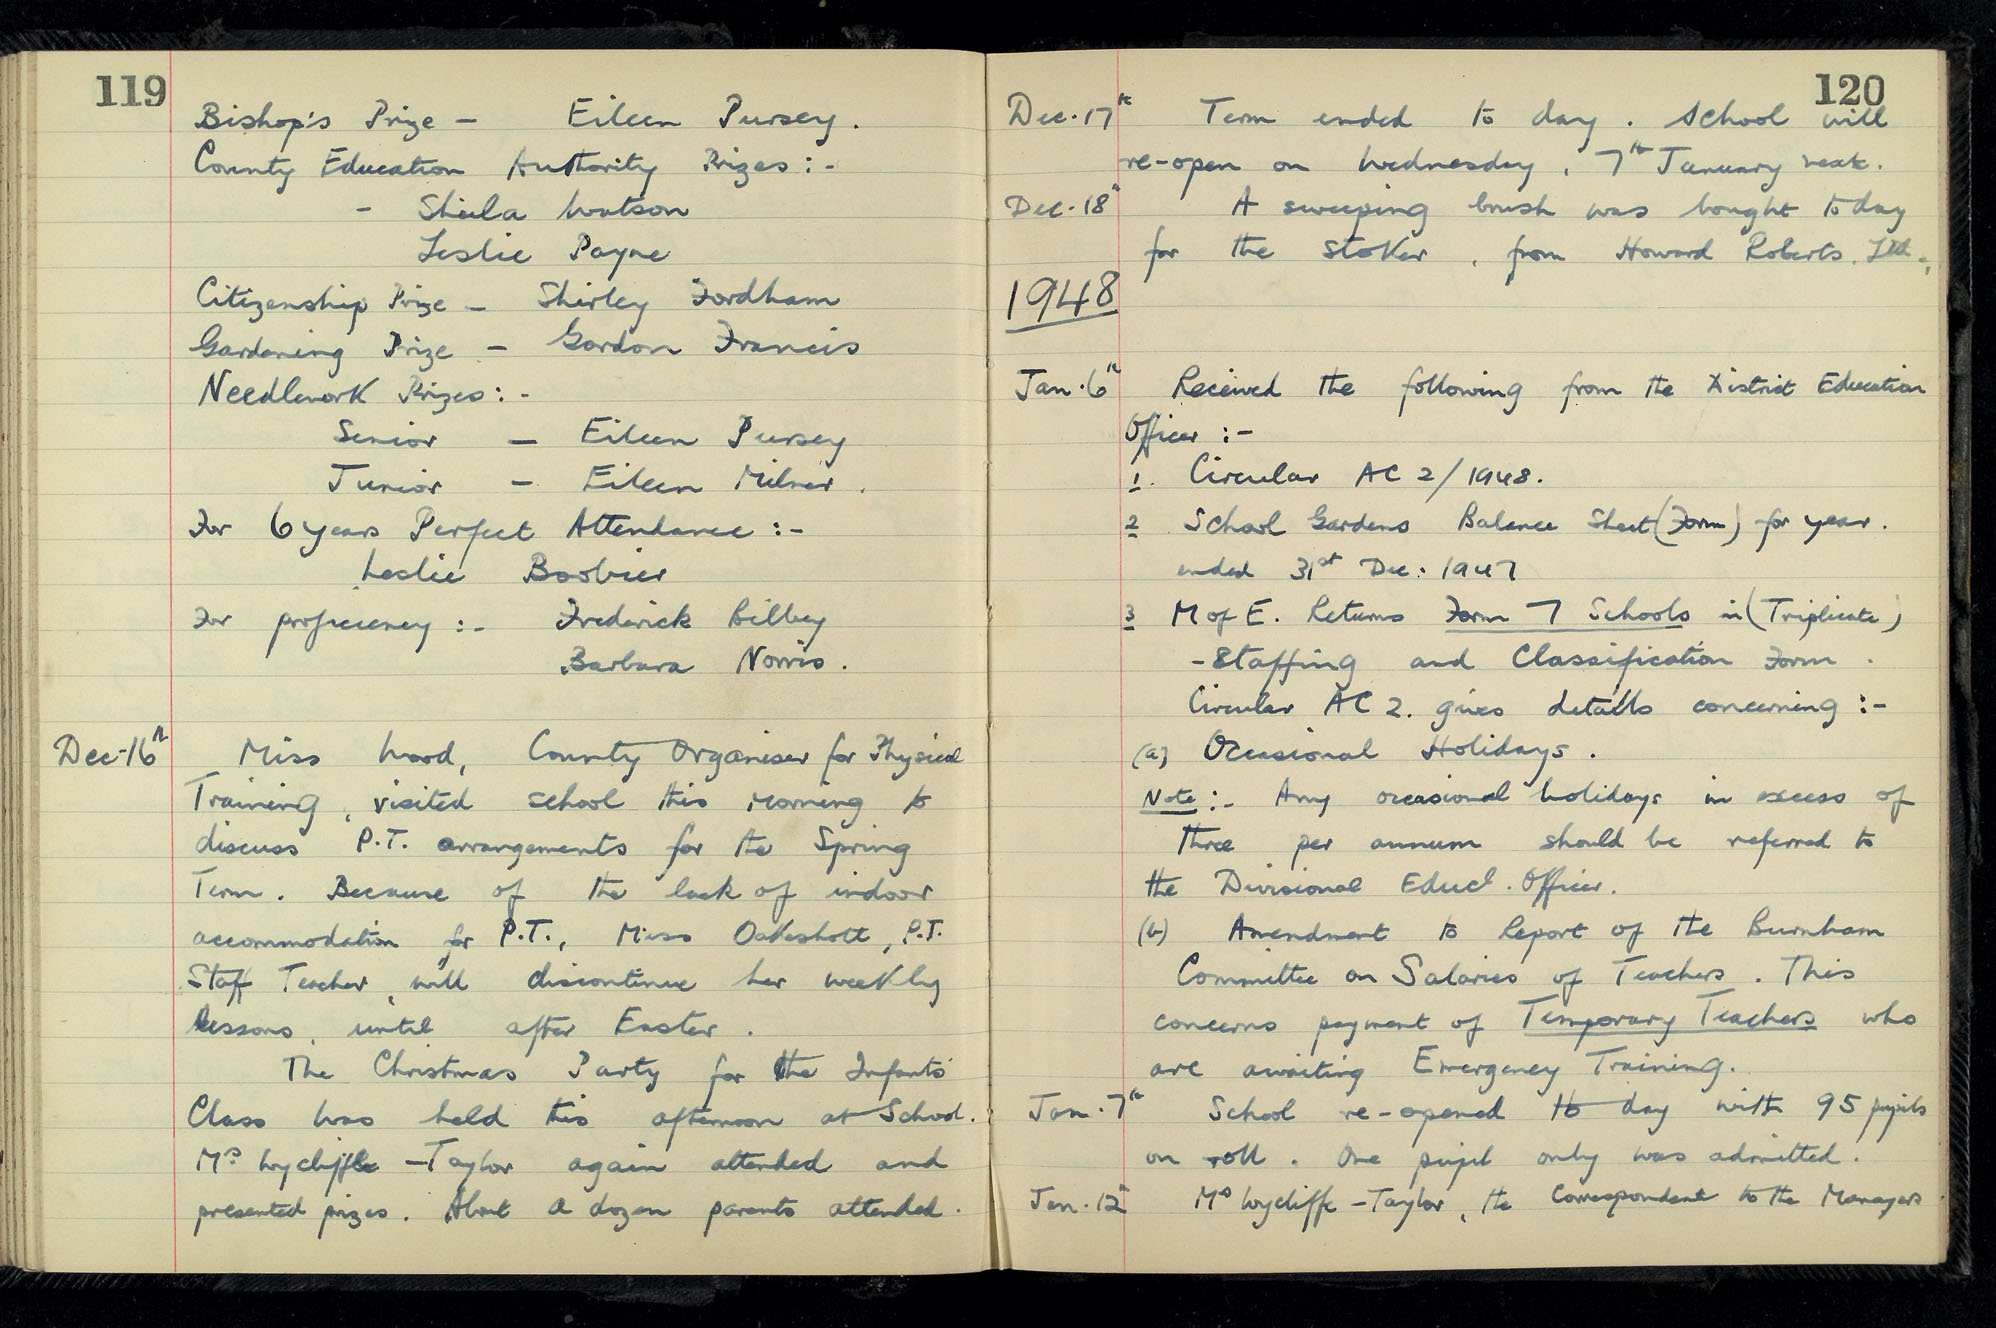 119
Bishop's Prize - Eileen Pursey.
County Education Authority Prizes :-
- Sheila Watson
Leslie Payne
Citizenship Prize - Shirley Fordham
Gardening Prize - Gordon Francis
Needlework Prizes :-
Senior - Eileen Pursey
Junior - Eileen Milner.
For 6 years Perfect Attendance :-
Leslie Boobier
For proficiency :- Frederick Bilbey
Barbara Norris.
Dec. 16th Miss Wood, County Organiser for Physical
Training, visited school this morning to
discuss P.T. arrangements for the Spring
Term. Because of the lack of indoor
accommodation for P.T., Miss Oakeshott, P.T.
Staff Teacher, will discontinue her weekly
lessons, until after Easter.
The Christmas Party for the Infants'
Class was held this afternoon at School.
Mrs Wycliffe-Taylor again attended and
presented prizes. About a dozen parents attended.
120
Dec. 17th Term ended to day. School will
re-open on Wednesday, 7th January next.
Dec. 18th A sweeping brush was bought today
for the stoker, from Howard Roberts. Ltd.,
1948
Jan. 6th Received the following from the District Education
Officer :-
1. Circular AC 2/1948.
2 School Gardens Balance Sheet (Form) for year.
ended 31st Dec: 1947
3 M of E. Returns Form 7 Schools in (Triplicate)
- Staffing and Classification Form.
Circular AC 2. gives details concerning :-
(a) Occasional Holidays.
Note :- Any occasional holidays in excess of
three per annum should be referred to
the Divisional Educl. Officer.
(b) Amendment to Report of the Burnham
Committee on Salaries of Teachers. This
concerns payment of Temporary Teachers who
are awaiting Emergency Training.
Jan. 7th School re-opened to day with 95 pupils
on roll. One pupil only was admitted.
Jan. 12th Mrs Wycliffe-Taylor, the Correspondent to the Managers